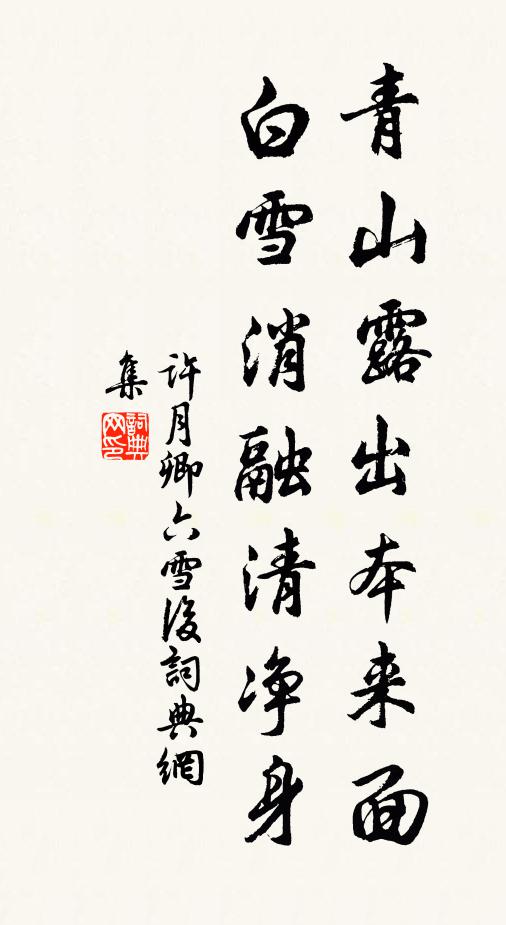 青山露出本来面
白雪消融清净身
许月卿六雪後詞典網
集
詞典
网印